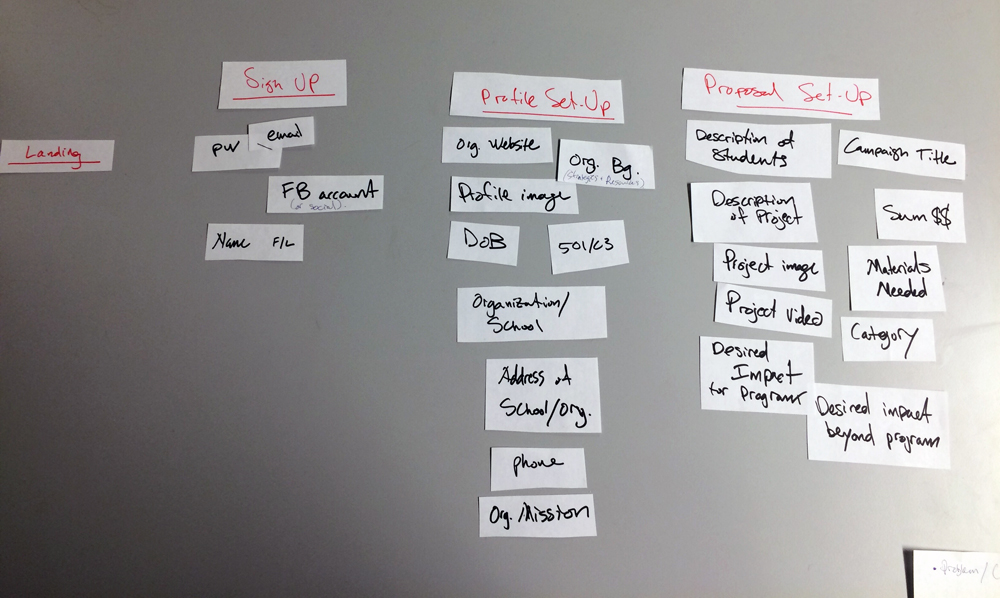 Landing
Sign Up
email
pw
FB account
(or social)
Name F/L
Profile Set-Up
Org. Website
Org. Bg.
(Strategies + Resources)
Profile image
DOB
501/c3
Organization/
School
Address of
School/Org.
phone
Org. Mission
Proposal Set-Up
Description of
Students
Campaign Title
Description
of Project
Sum $$
Project image
Materials
Needed
Project Video
Category
Desired
Impact
for Program
Desired impact
beyond program
• Problem /